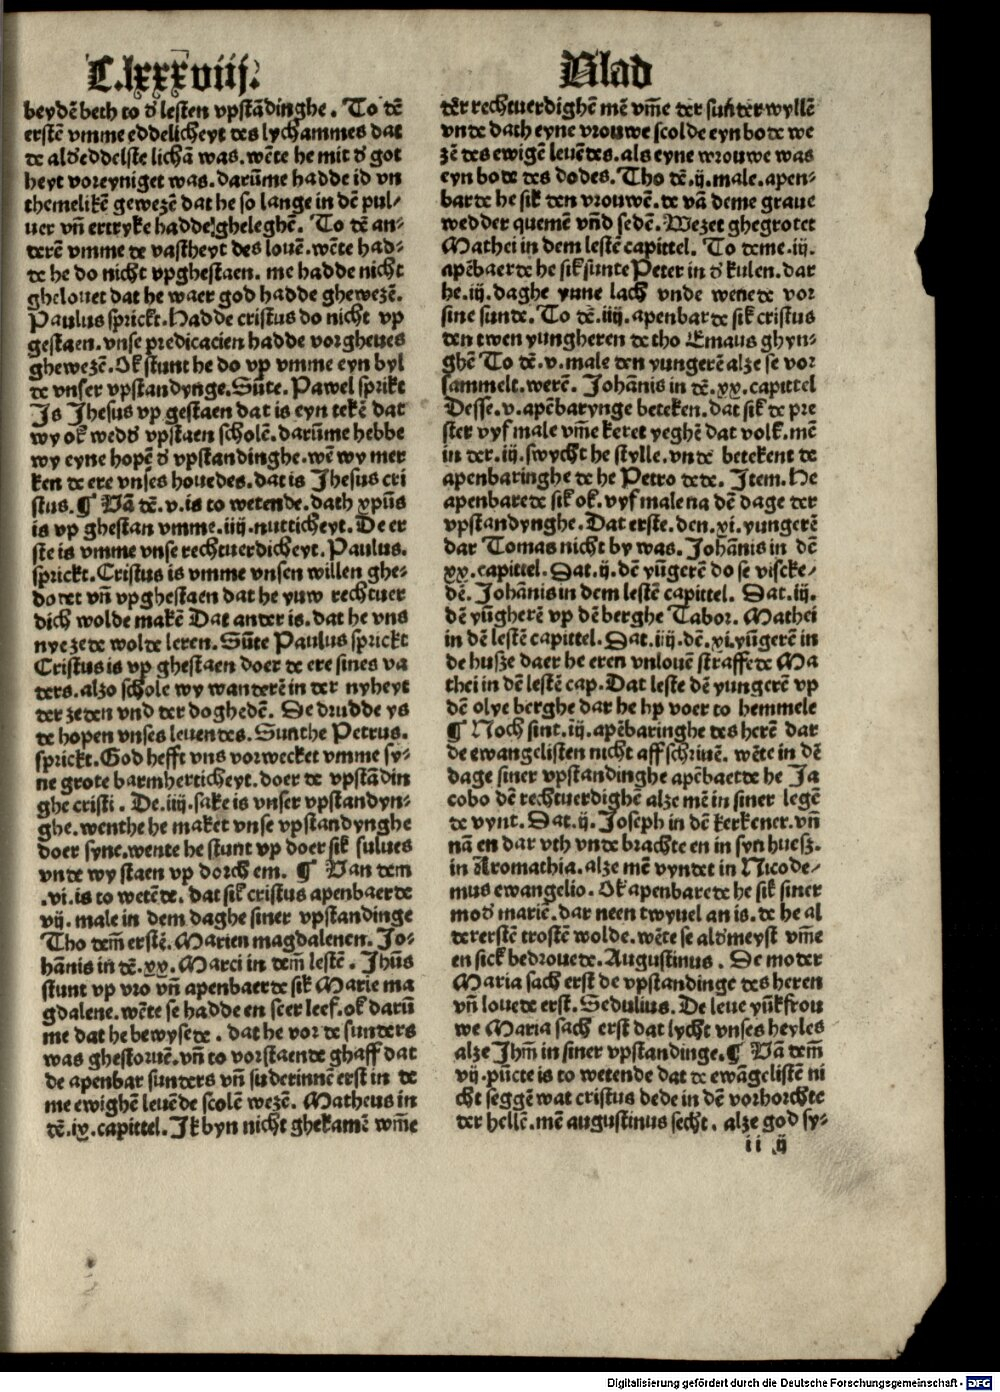 C.lxxxviij.
Blad
beydē beth to d' lesten vpstādinghe. To dē
erstē vmme eddelicheyt des lychammes dat
de ald'eddelste lichā was. wēte he mit d' got
heyt voreyniget was. darūme hadde id vn
themelikē gewezē dat he so lange in dē pul-
uer vñ ertryke hadde gheleghē. To dē an-
derē vmme de vastheyt des louē. wēte had-
de he do nicht vpghestaen. me hadde nicht
ghelouet dat he waer god hadde ghewezē.
Paulus sprickt. Hadde cristus do nicht vp
gestaen. vnse predicacien hadde vorgheues
ghewezē. Ok stunt he do vp vmme eyn byl
de vnser vpstandynge. Sūte. Pawel sprikt
Is Jhesus vp gestaen dat is eyn tekē dat
wy ok wedd' vpstaen scholē. darūme hebbe
wy eyne hopē d' vpstandinghe. wē wy mer
ken de ere vnses houedes. dat is Jhesus cri
stus. ¶ Vā dē. v. is to wetende. dath xpūs
is vp ghestan vmme. iiij. nutticheyt. De er
ste is vmme vnse rechtuerdicheyt. Paulus.
sprickt. Cristus is vmme vnsen willen ghe-
dotet vñ vpghestaen dat he yuw rechtuer
dich wolde makē Dat ander is. dat he vns
nye zede wolde leren. Sūte Paulus sprickt
Cristus is vp ghestaen doer de ere sines va
ders. alzo schole wy wanderē in der nyheyt
der zeden vnd der doghedē. De drudde ys
de hopen vnses leuendes. Sunthe Petrus.
sprickt. God hefft vns vorwecket vmme sy-
ne grote barmherticheyt. doer de vpstādin
ghe cristi. De. iiij. sake is vnser vpstandyn-
ghe. wenthe he maket vnse vpstandynghe
doer syne. wente he stunt vp doer sik sulues
vnde wy staen vp dorch em. ¶ Van dem
.vi. is to wetēde. dat sik cristus apenbaerde
vij. male in dem daghe siner vpstandinge
Tho dem̄ erstē. Marien magdalenen. Jo-
hānis in dē. xx. Marci in dem̄ lestē. Jhūs
stunt vp vro vñ apenbaerde sik Marie ma
gdalene. wēte se hadde en seer leef. ok darū
me dat he bewysede. dat he vor de sunders
was ghestoruē. vñ to vorstaende ghaff dat
de apenbar sunders vñ suderinnē erst in de
me ewighē leuēde scolē wezē. Matheus in
dē. ix. capittel. Jk byn nicht ghekamē vm̄e
der rechtuerdighē mē vm̄e der sunder wyllē
vnde dath eyne vrouwe scolde eyn bode we
zē des ewigē leuēdes. als eyne vrouwe was
eyn bode des dodes. Tho dē. ij. male. apen-
barde he sik den vrouwē. de vā deme graue
wedder quemē vñd sedē. Wezet ghegrotet
Mathei in dem lestē capittel. To deme. iij.
apēbaerde he sik sunte Peter in d' kulen. dar
he. iij. daghe ynne lach vnde wenede vor
sine sunde. To dē. iiij. apenbarde sik cristus
den twen yungheren de tho Emaus ghyn-
ghē To dē. v. male den yungerē alze se vor
sammelt. werē. Johānis in dē. xx. capittel
Desse. v. apēbarynge beteken. dat sik de pre
ster vyf male vm̄e keret yeghē dat volk. mē
in der. iij. swycht he stylle. vnde betekent de
apenbaringhe de he Petro dede. Item. He
apenbarede sik ok. vyf male na dē dage der
vpstandynghe. Dat erste. den. xi. yungerē
dar Tomas nicht by was. Johānis in dē
xx. capittel. Dat. ij. dē yūgerē do se viscke-
dē. Johānis in dem lestē capittel. Dat. iij.
dē yūgherē vp dē berghe Tabor. Mathei
in dē lestē capittel. Dat. iiij. dē. xi. yūgerē in
de husze daer he eren vnlouē straffede Ma
thei in dē lestē cap. Dat leste dē yungerē vp
dē olye berghe dar he hp voer to hemmele
¶ Noch sint. iij. apēbaringhe des herē dar
de ewangelisten nicht aff schriuē. wēte in dē
dage siner vpstandinghe apēbaetde he Ja
cobo dē rechtuerdighē alze mē in siner legē
de vynt. Dat. ij. Joseph in dē kerkener. vñ
nā en dar vth vnde brachte en in syn huesz.
in Aromathia. alze mē vyndet in Nicode-
mus ewangelio. Ok apenbarede he sik siner
mod' mariē. dar neen twyuel an is. de he al
dererstē trostē wolde. wēte se ald'meyst vm̄e
en sick bedrouede. Augustinus. De moder
Maria sach erst de vpstandinge des heren
vñ louede erst. Sedulius. De leue yūkfrou
we Maria sach erst dat lycht vnses heyles
alze Jhm̄ in siner vpstandinge. ¶ Vā dem̄
vij. pūcte is to wetende dat de ewāgelistē ni
cht seggē wat cristus dede in dē vorhorchte
der hellē. mē augustinus secht. alze god sy-
ii ij
Digitalisierung gefördert durch die Deutsche Forschungsgemeinschaft - DFG